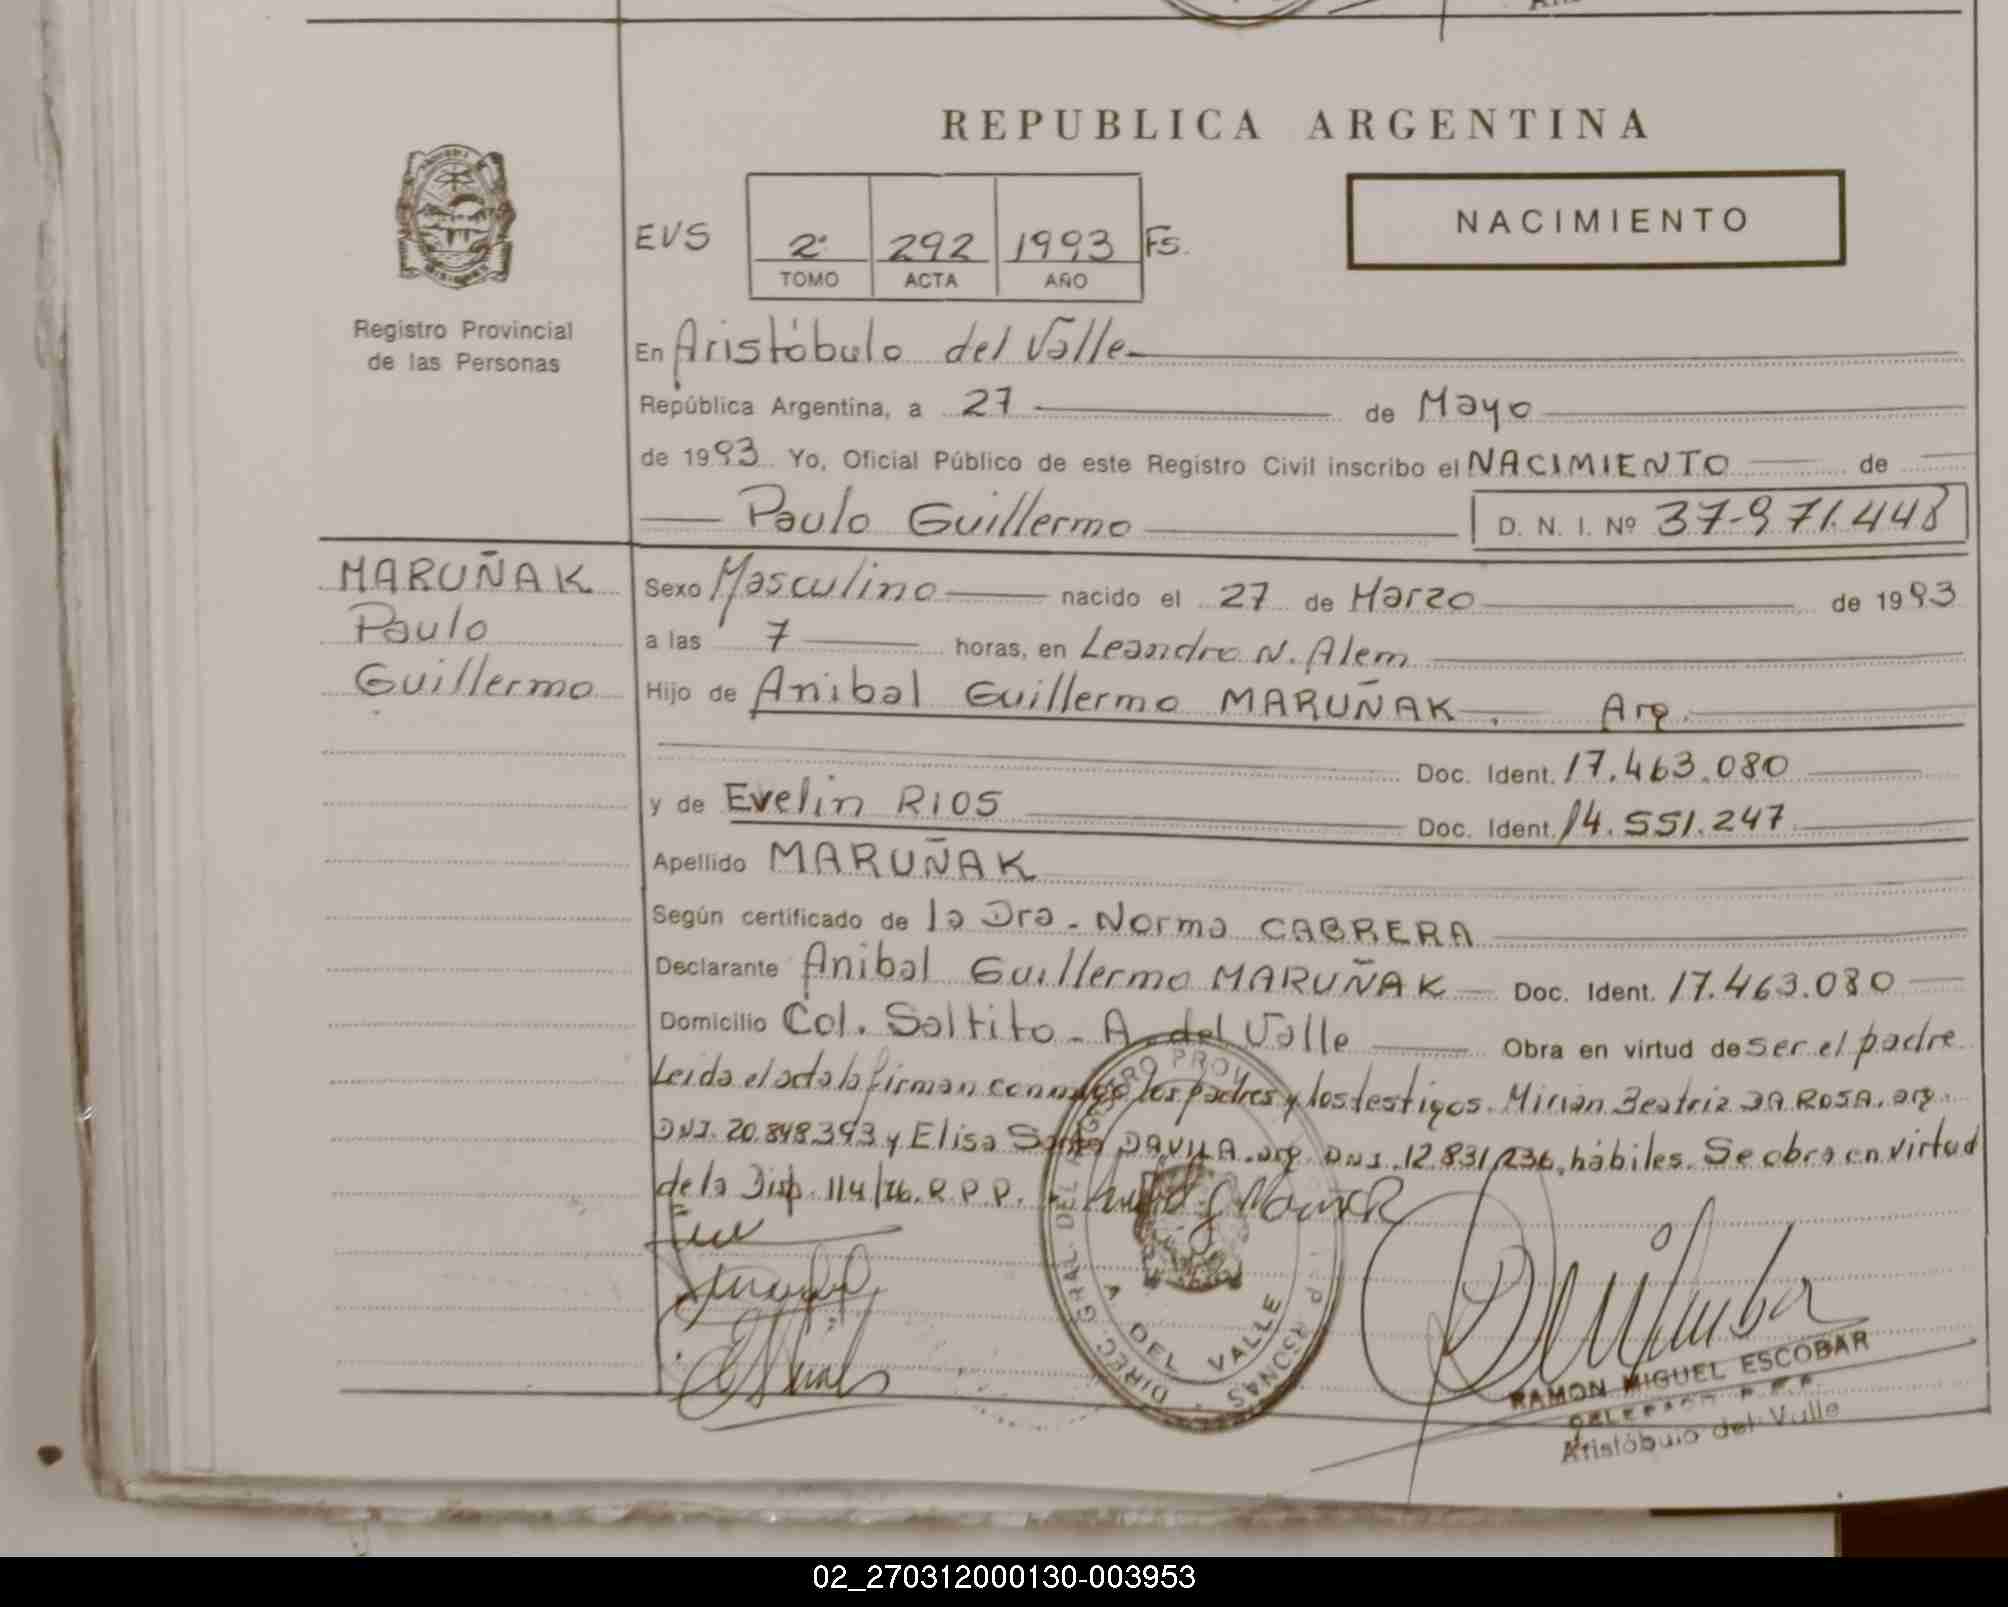 REPUBLICA ARGENTINA
NACIMIENTO
EVS 2º 292 1993 Fs.
TOMO ACTA AÑO
Registro Provincial
de las Personas
En Aristóbulo del Valle
República Argentina, a 27 de Mayo
de 1993 Yo, Oficial Público de este Registro Civil inscribo el NACIMIENTO de
Paulo Guillermo D. N. I. Nº 37-971.448
MARUÑAK
Paulo
Guillermo
Sexo Masculino nacido el 27 de Marzo de 1993
a las 7 horas, en Leandro N. Alem
Hijo de Anibal Guillermo MARUÑAK. Arg.
Doc. Ident. 17.463.080
y de Evelin RIOS Doc. Ident. 14.551.247
Apellido MARUÑAK
Según certificado de la Dra. Norma CABRERA
Declarante Anibal Guillermo MARUÑAK Doc. Ident. 17.463.080
Domicilio Col. Saltito - A. del Valle Obra en virtud de ser el padre
Leida el acta la firman conmigo los padres y los testigos. Mirian Beatriz DA ROSA. arg.
DNI. 20.848.393 y Elisa DAVILA. arg. DNI. 12.831.236, hábiles. Se obra en virtud
de la Disp. 114/76. R.P.P.
DIREC. GRAL. DEL REGISTRO PROV. PERSONAS
A. DEL VALLE
RAMON MIGUEL ESCOBAR
DELEGADO R.P.P.
Aristóbulo del Valle
02_270312000130-003953